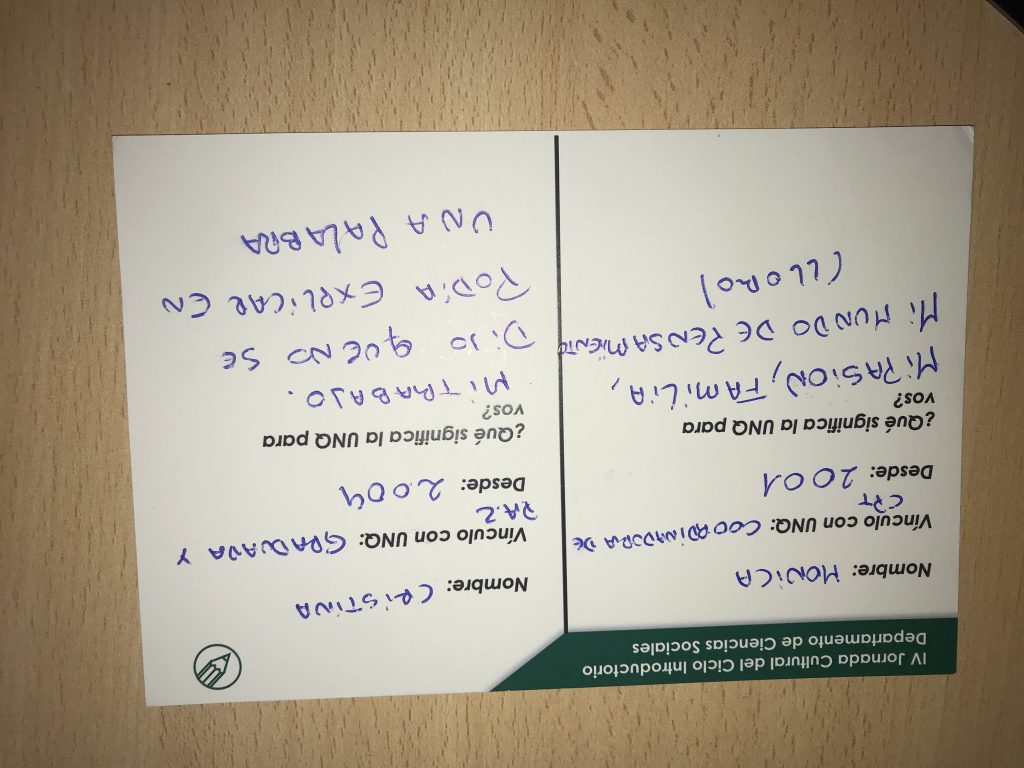 IV Jornada Cultural del Ciclo Introductorio
Departamento de Ciencias Sociales
Nombre: MONICA
Vínculo con UNQ: COORDINADORA DE
CPT
Desde: 2001
¿Qué significa la UNQ para
vos?
MI PASION, FAMILIA,
MI MUNDO DE PENSAMIENTO
(LLORO)
Nombre: CRISTINA
Vínculo con UNQ: GRADUADA Y
P.A.Z
Desde: 2004
¿Qué significa la UNQ para
vos?
MI TRABAJO.
DIJO QUE NO SE
PODÍA EXPLICAR EN
UNA PALABRA